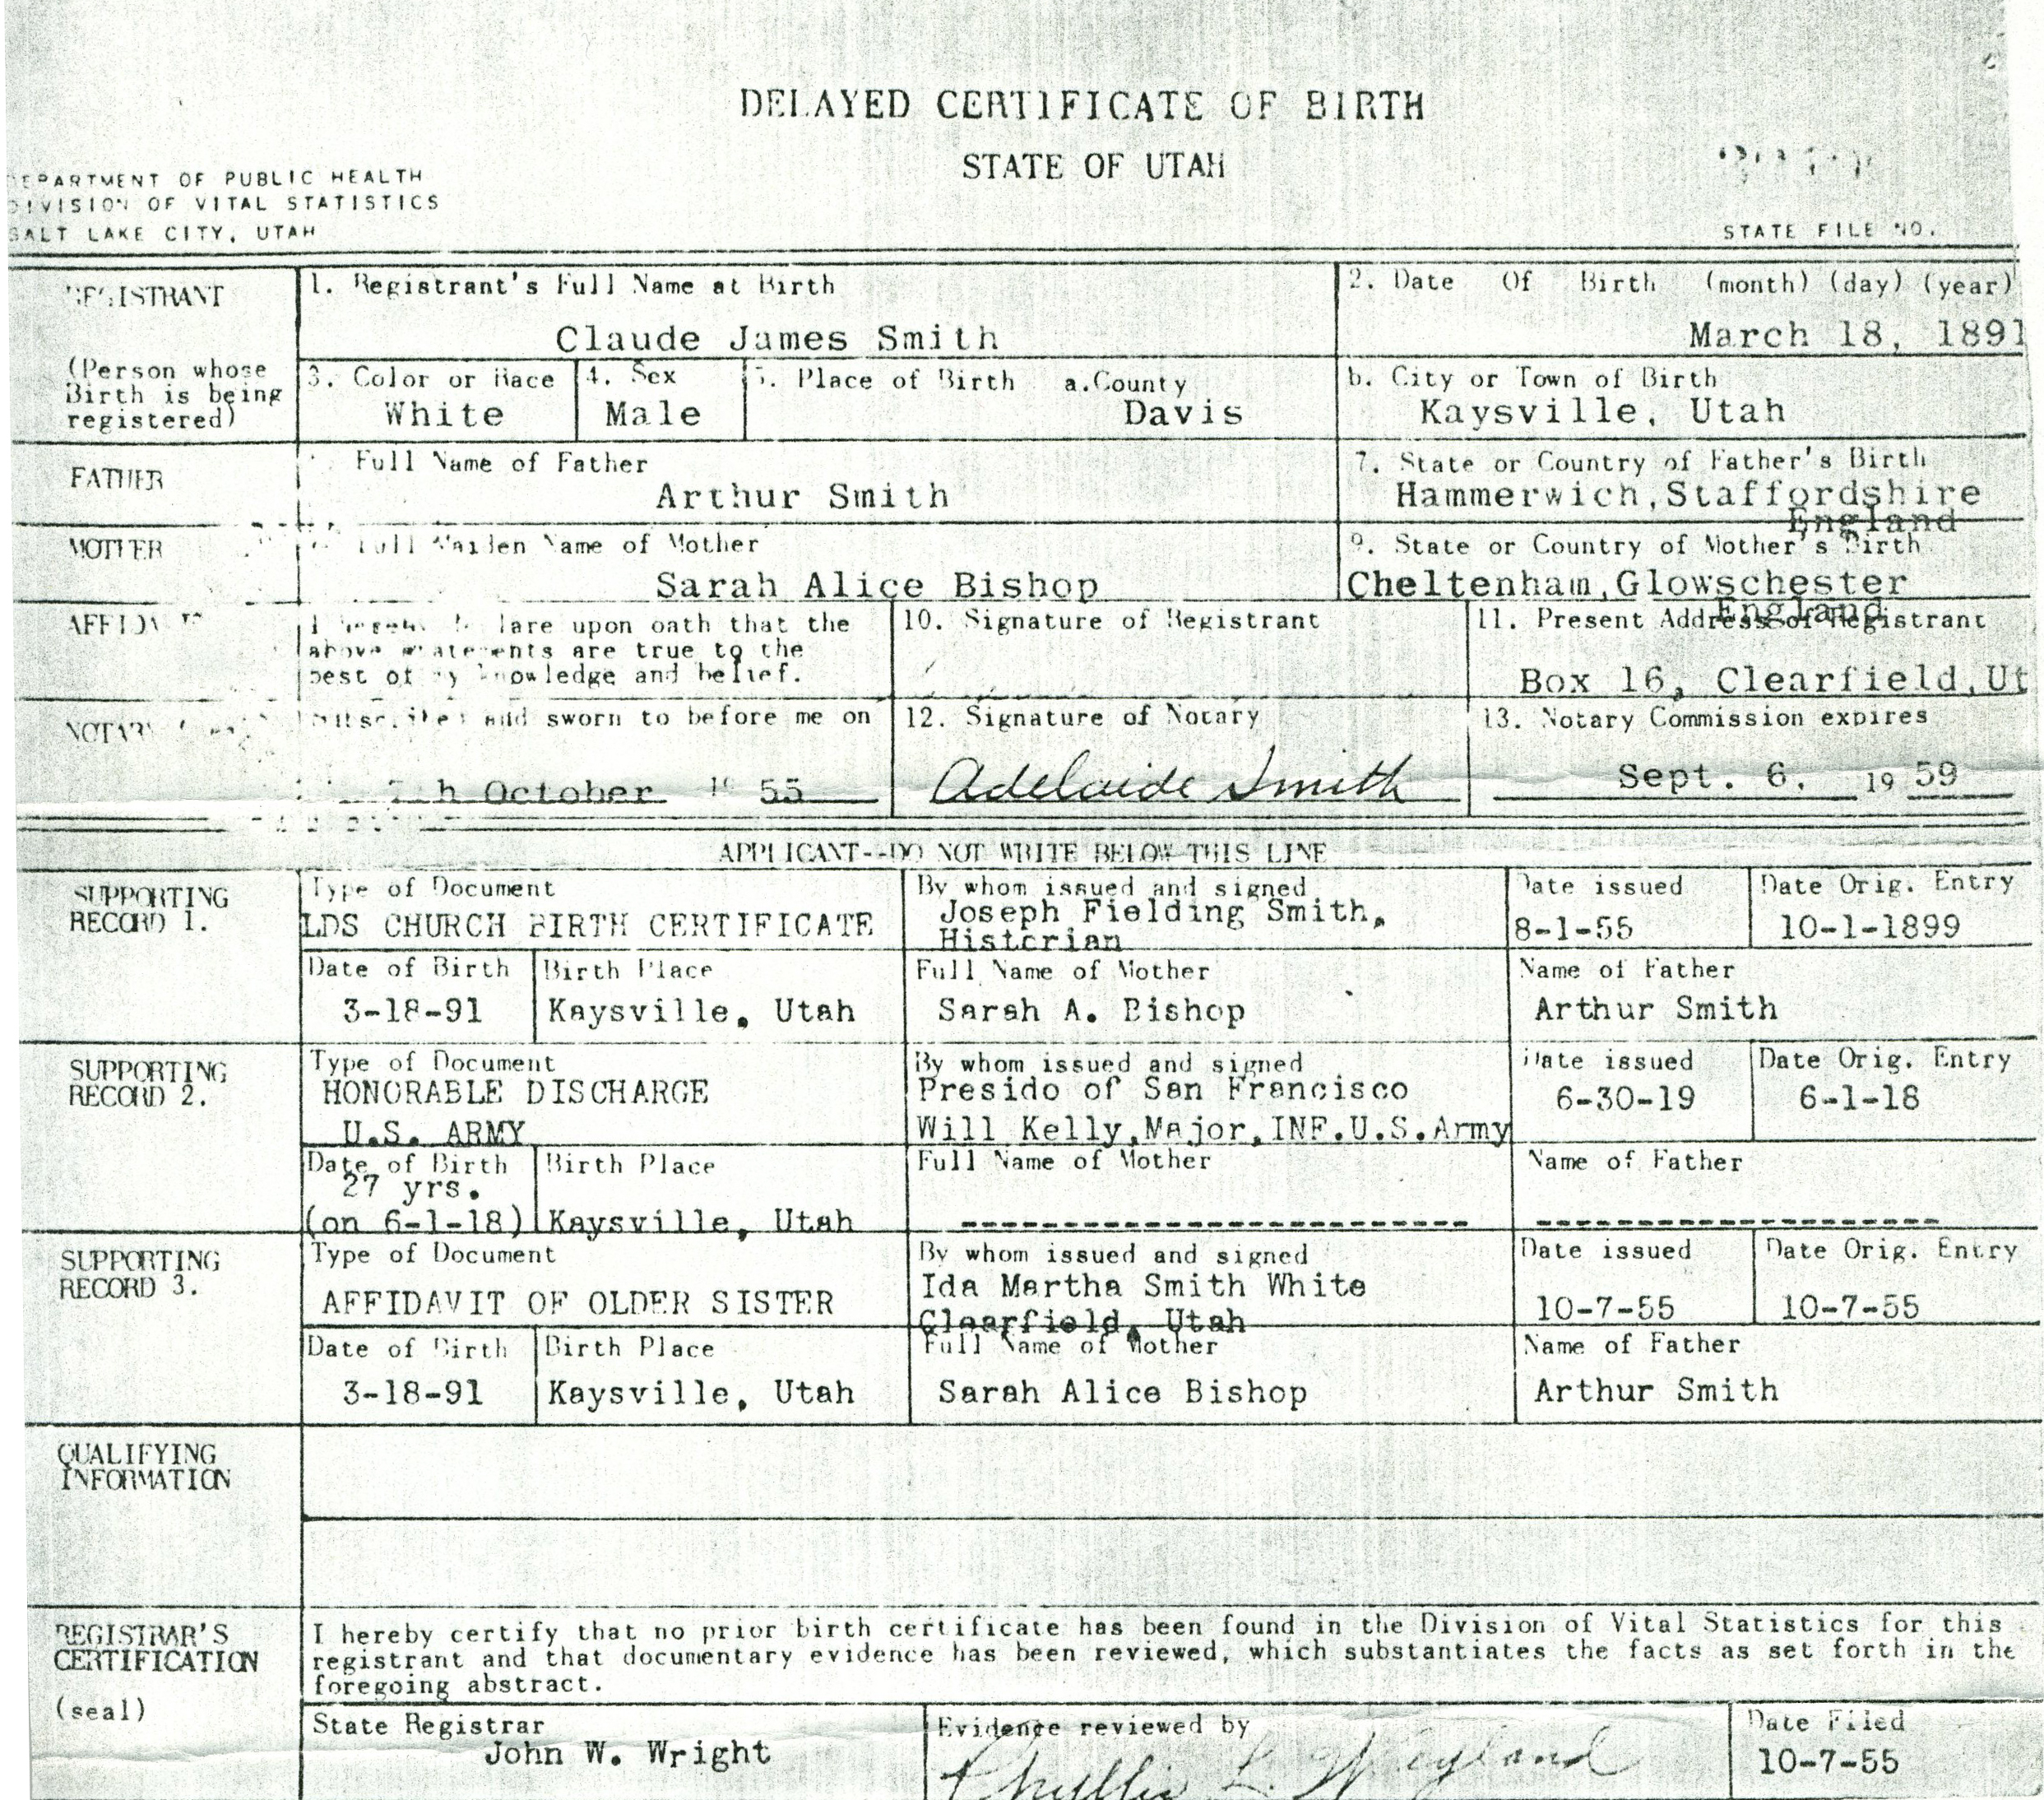 DELAYED CERTIFICATE OF BIRTH
STATE OF UTAH
DEPARTMENT OF PUBLIC HEALTH
DIVISION OF VITAL STATISTICS
SALT LAKE CITY, UTAH
STATE FILE NO.
REGISTRANT
(Person whose
Birth is being
registered)
1. Registrant's Full Name at Birth
Claude James Smith
2. Date Of Birth (month) (day) (year)
March 18, 1891
3. Color or Race
White
4. Sex
Male
5. Place of Birth a.County
Davis
b. City or Town of Birth
Kaysville, Utah
FATHER
Full Name of Father
Arthur Smith
7. State or Country of Father's Birth
Hammerwich,Staffordshire
England
MOTHER
Full Maiden Name of Mother
Sarah Alice Bishop
9. State or Country of Mother's Birth
Cheltenham,Glowschester
England
AFFIDAVIT
I hereby declare upon oath that the
above statements are true to the
best of my knowledge and belief.
10. Signature of Registrant
11. Present Address of Registrant
Box 16, Clearfield,Ut
NOTARY
Subscribed and sworn to before me on
7th October 19 55
12. Signature of Notary
Adelaide Smith
13. Notary Commission expires
Sept. 6, 19 59
APPLICANT--DO NOT WRITE BELOW THIS LINE
SUPPORTING
RECORD 1.
Type of Document
LDS CHURCH BIRTH CERTIFICATE
By whom issued and signed
Joseph Fielding Smith,
Historian
Date issued
8-1-55
Date Orig. Entry
10-1-1899
Date of Birth
3-18-91
Birth Place
Kaysville, Utah
Full Name of Mother
Sarah A. Bishop
Name of Father
Arthur Smith
SUPPORTING
RECORD 2.
Type of Document
HONORABLE DISCHARGE
U.S. ARMY
By whom issued and signed
Presido of San Francisco
Will Kelly,Major,INF.U.S.Army
Date issued
6-30-19
Date Orig. Entry
6-1-18
Date of Birth
27 yrs.
(on 6-1-18)
Birth Place
Kaysville, Utah
Full Name of Mother
-------------------------
Name of Father
--------------------
SUPPORTING
RECORD 3.
Type of Document
AFFIDAVIT OF OLDER SISTER
By whom issued and signed
Ida Martha Smith White
Clearfield, Utah
Date issued
10-7-55
Date Orig. Entry
10-7-55
Date of Birth
3-18-91
Birth Place
Kaysville, Utah
Full Name of Mother
Sarah Alice Bishop
Name of Father
Arthur Smith
QUALIFYING
INFORMATION
REGISTRAR'S
CERTIFICATION
(seal)
I hereby certify that no prior birth certificate has been found in the Division of Vital Statistics for this
registrant and that documentary evidence has been reviewed, which substantiates the facts as set forth in the
foregoing abstract.
State Registrar
John W. Wright
Evidence reviewed by
Phyllis L. Weyland
Date Filed
10-7-55